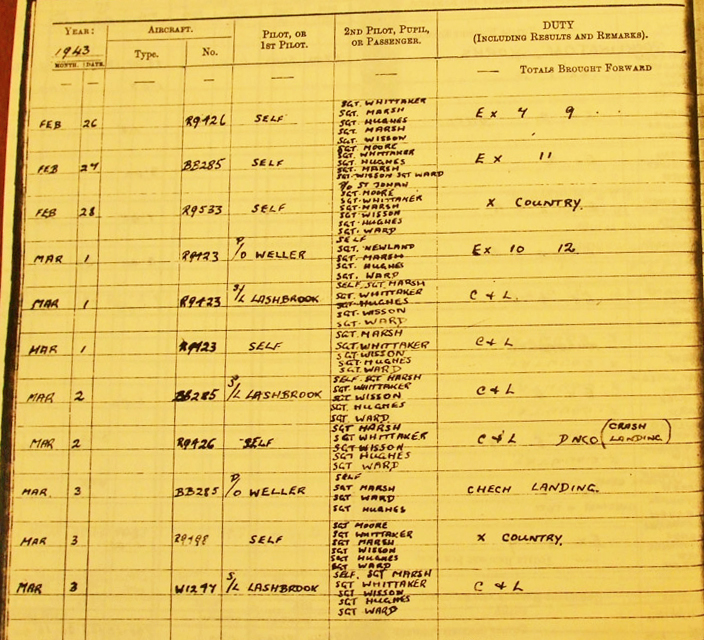 YEAR: AIRCRAFT. PILOT, OR 1ST PILOT. 2ND PILOT, PUPIL, OR PASSENGER. DUTY (INCLUDING RESULTS AND REMARKS).
1943
MONTH. DATE. Type. No.
— — — — — — — TOTALS BROUGHT FORWARD
SGT. WHITTAKER
SGT. MARSH
FEB 26 R9426 SELF SGT. HUGHES Ex 4 9
SGT. MARSH
SGT. WISSON
SGT. MOORE
SGT. WHITTAKER
FEB 27 BB285 SELF SGT. HUGHES Ex 11
SGT. MARSH
SGT. WISSON SGT WARD
P/O ST JOHAN
SGT. MOORE
SGT. WHITTAKER
FEB 28 R9533 SELF SGT. MARSH X COUNTRY
SGT. WISSON
SGT. HUGHES
SGT. WARD
SELF
SGT. NEWLAND
MAR 1 R9423 P/O WELLER SGT. MARSH Ex 10 12
SGT. HUGHES
SGT. WARD
SELF. SGT. MARSH
MAR 1 R9423 S/L LASHBROOK SGT. WHITTAKER C & L.
SGT. HUGHES
SGT. WISSON
SGT. WARD
SGT. MARSH
MAR 1 R9423 SELF SGT. WHITTAKER C & L
SGT. WISSON
SGT. HUGHES
SGT. WARD
SELF. SGT MARSH
SGT. WHITTAKER
MAR 2 BB285 S/L LASHBROOK SGT WISSON C & L
SGT. HUGHES
SGT. WARD
SGT MARSH
MAR 2 R9426 SELF SGT WHITTAKER C & L DNCO (CRASH LANDING)
SGT WISSON
SGT HUGHES
SGT WARD
SELF
MAR. 3 BB285 P/O WELLER SGT MARSH CHECH LANDING.
SGT WARD
SGT HUGHES
SGT MOORE
SGT WHITTAKER
MAR 3 SELF SGT MARSH X COUNTRY
SGT WISSON
SGT HUGHES
SGT WARD
SELF. SGT MARSH
MAR 3 W1277 S/L LASHBROOK SGT WHITTAKER C & L
SGT WISSON
SGT HUGHES
SGT WARD